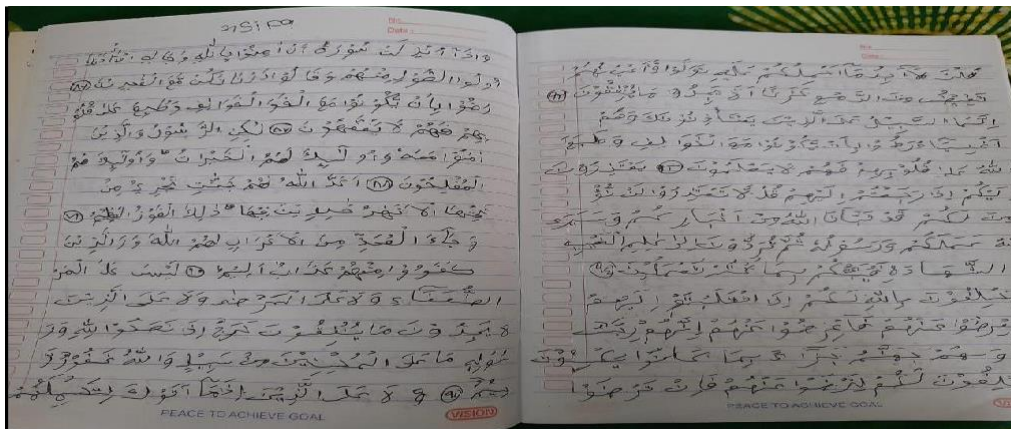 nSipa
وَإِذَا أُنْزِلَتْ سُورَةٌ أَنْ آمِنُوا بِاللَّهِ
أُولُوا الطَّوْلِ مِنْهُمْ وَقَالُوا ذَرْنَا نَكُنْ مَعَ الْقَعِدِينَ ٨٦
رَضُوا بِأَنْ يَكُونُوا مَعَ الْخَوَالِفِ وَطُبِعَ عَلَىٰ قُلُو
بِهِمْ فَهُمْ لَا يَفْقَهُونَ ٨٧ لَٰكِنِ الرَّسُولُ وَالَّذِينَ
آمَنُوا مَعَهُ وَأُولَٰئِكَ لَهُمُ الْخَيْرَاتُ وَأُولَٰئِكَ هُمُ
الْمُفْلِحُونَ ٨٨ أَعَدَّ اللَّهُ لَهُمْ جَنَّٰتٍ تَجْرِي مِنْ
تَحْتِهَا الْأَنْهَٰرُ خَٰلِدِينَ فِيهَا ذَٰلِكَ الْفَوْزُ الْعَظِيمُ ٨٩
وَجَاءَ الْمُعَذِّرُونَ مِنَ الْأَعْرَابِ لَهُمْ اللَّهَ وَالَّذِينَ
كَفَرُوا مِنْهُمْ عَذَابٌ أَلِيمٌ ٩٠ لَيْسَ عَلَى
الضُّعَفَاءِ وَلَا عَلَى الْمَرْضَىٰ وَلَا عَلَى الَّذِينَ
لَا يَجِدُونَ مَا يُنْفِقُونَ حَرَجٌ إِذَا نَصَحُوا لِلَّهِ وَرَ
سُولِهِ مَا عَلَى الْمُحْسِنِينَ مِنْ سَبِيلٍ وَاللَّهُ غَفُورٌ رَ
حِيمٌ ٩١ وَلَا عَلَى الَّذِينَ إِذَا مَا أَتَوْكَ لِتَحْمِلَهُمْ
PEACE TO ACHIEVE GOAL
VISION
قُلْتَ لَا أَجِدُ مَا أَحْمِلُكُمْ عَلَيْهِ تَوَلَّوْا وَأَعْيُنُهُمْ
تَفِيضُ مِنَ الدَّمْعِ حَزَنًا أَلَّا يَجِدُوا مَا يُنْفِقُونَ ٩٢
إِنَّمَا السَّبِيلُ عَلَى الَّذِينَ يَسْتَأْذِنُونَكَ وَهُمْ
أَغْنِيَاءُ رَضُوا بِأَنْ يَكُونُوا مَعَ الْخَوَالِفِ وَطَبَعَ
اللَّهُ عَلَىٰ قُلُوبِهِمْ فَهُمْ لَا يَعْلَمُونَ ٩٣ يَعْتَذِرُونَ
إِلَيْكُمْ إِذَا رَجَعْتُمْ إِلَيْهِمْ قُلْ لَا تَعْتَذِرُوا لَنْ نُؤْ
مِنَ لَكُمْ قَدْ نَبَّأَنَا اللَّهُ مِنْ أَخْبَارِكُمْ وَسَيَرَى
اللَّهُ عَمَلَكُمْ وَرَسُولُهُ ثُمَّ تُرَدُّونَ إِلَىٰ عَٰلِمِ الْغَيْبِ
وَالشَّهَادَةِ فَيُنَبِّئُكُمْ بِمَا كُنْتُمْ تَعْمَلُونَ ٩٤
سَيَحْلِفُونَ بِاللَّهِ لَكُمْ إِذَا انْقَلَبْتُمْ إِلَيْهِمْ
لِتُعْرِضُوا عَنْهُمْ فَأَعْرِضُوا عَنْهُمْ إِنَّهُمْ رِجْسٌ
وَمَأْوَىٰهُمْ جَهَنَّمُ جَزَاءً بِمَا كَانُوا يَكْسِبُونَ
يَحْلِفُونَ لَكُمْ لِتَرْضَوْا عَنْهُمْ فَإِنْ تَرْضَوْا
PEACE TO ACHIEVE GOAL